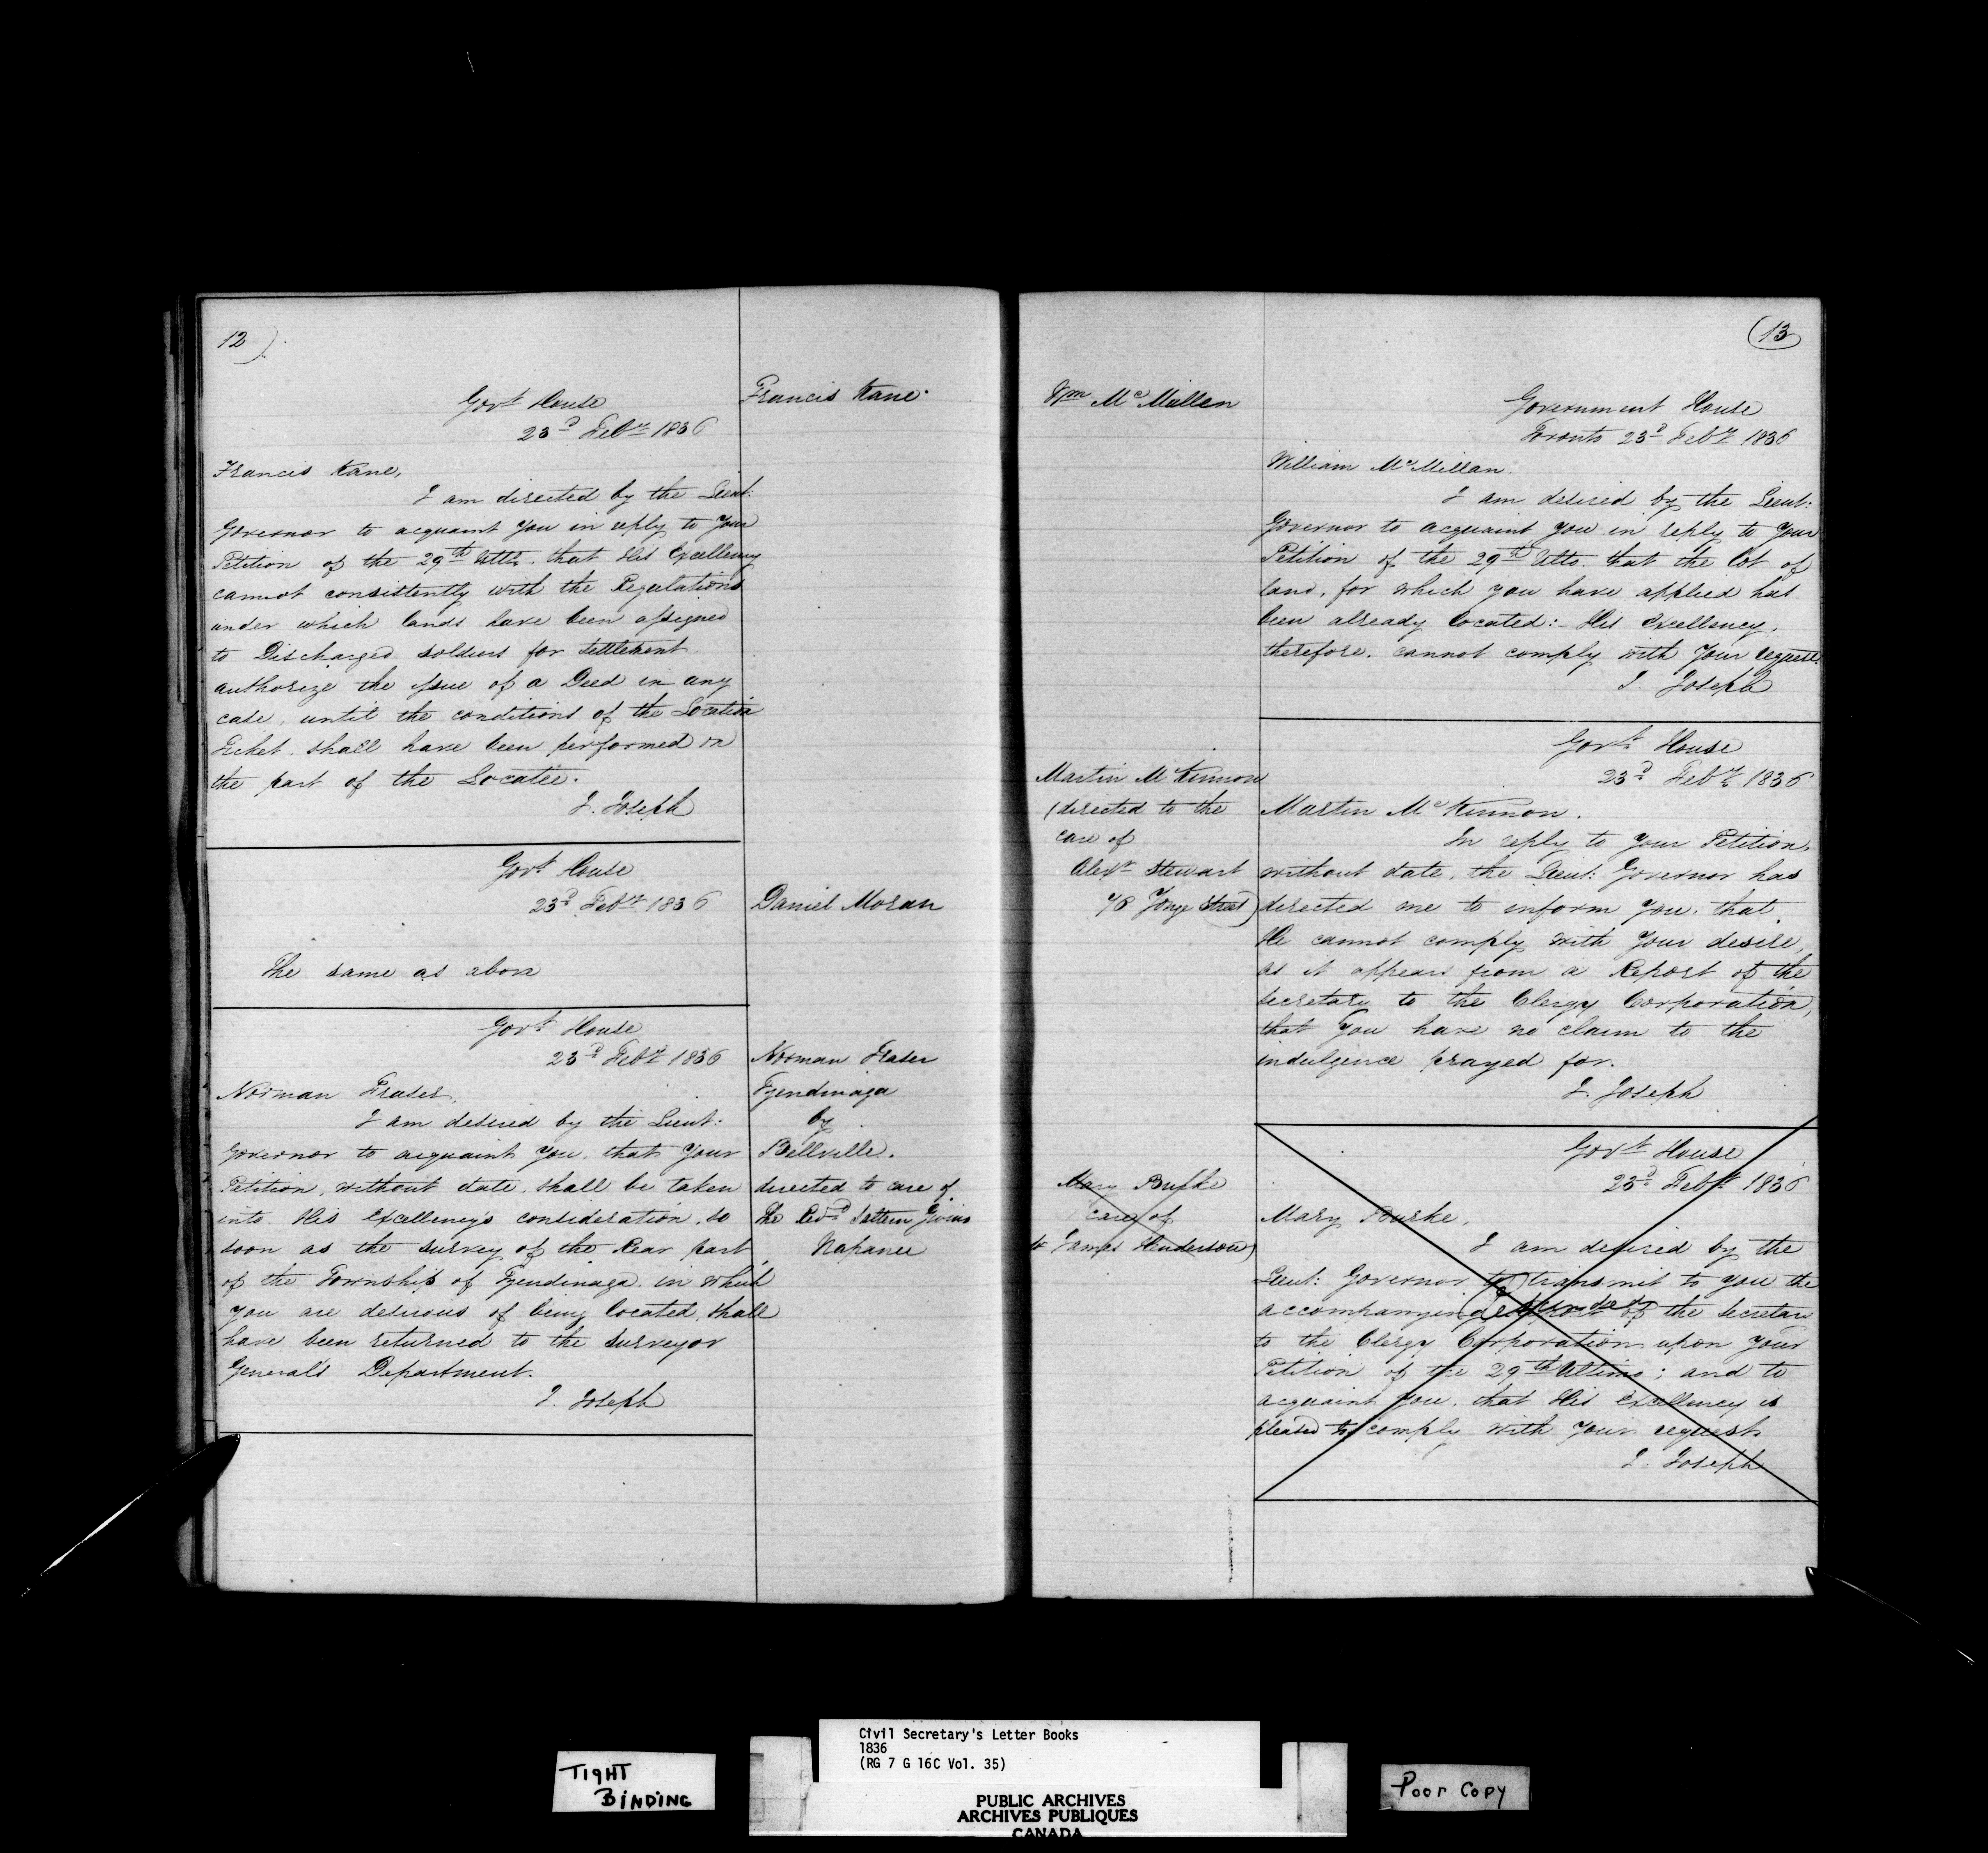 12)
Francis Kane.
Govt. House
23d. Feby. 1836
Francis Kane,
I am directed by the Lieut:
Governor to acquaint you in reply to Your
Petition of the 29th Ulto. that His Excellency
cannot consistently with the Regulations
under which lands have been assigned
to Discharged soldiers for settlement
authorize the issue of a Deed in any
case, until the conditions of the Location
Ticket shall have been performed on
the part of the Locatee.
J. Joseph
Govt. House
23d. Feby. 1836
Daniel Moran
The same as above
Govt. House
23d. Feby. 1836
Norman Fraser
Tyendinaga
by
Bellville.
directed to care of
The Revd. Givins
Napanee
Norman Fraser,
I am desired by the Lieut:
Governor to acquaint you, that Your
Petition, without date, shall be taken
into His Excellency's consideration, so
soon as the survey of the Rear part
of the Township of Tyendinaga, in which
you are desirous of being located, shall
have been returned to the Surveyor
General's Department.
J. Joseph
(13
Wm McMillen
Government House
Toronto 23d Feby. 1836
William McMillan.
I am desired by the Lieut:
Governor to acquaint you in reply to Your
Petition of the 29th Ulto. that the lot of
land, for which you have applied has
been already located:- His Excellency,
therefore, cannot comply with Your request.
J. Joseph
Martin McKinnon
(directed to the
care of
Alexr Stewart
Yonge Street)
Govt. House
23d. Feby. 1836
Martin McKinnon.
In reply to Your Petition,
without date, the Lieut: Governor has
directed me to inform you, that
He cannot comply with Your desire,
as it appears from a Report of the
Secretary to the Clergy Corporation,
that You have no claim to the
indulgence prayed for.
J. Joseph
Mary Burke
care of
James Henderson)
Govt. House
23d. Feby. 1836
Mary Burke,
I am desired by the
Lieut: Governor to transmit to you the
accompanying of the Secretary
to the Clergy Corporation upon Your
Petition of the 29th Ultimo; and to
acquaint you, that His Excellency is
pleased to comply with Your request
J. Joseph
TIGHT
BINDING
Civil Secretary's Letter Books
1836
(RG 7 G 16C Vol. 35)
PUBLIC ARCHIVES
ARCHIVES PUBLIQUES
CANADA
Poor Copy